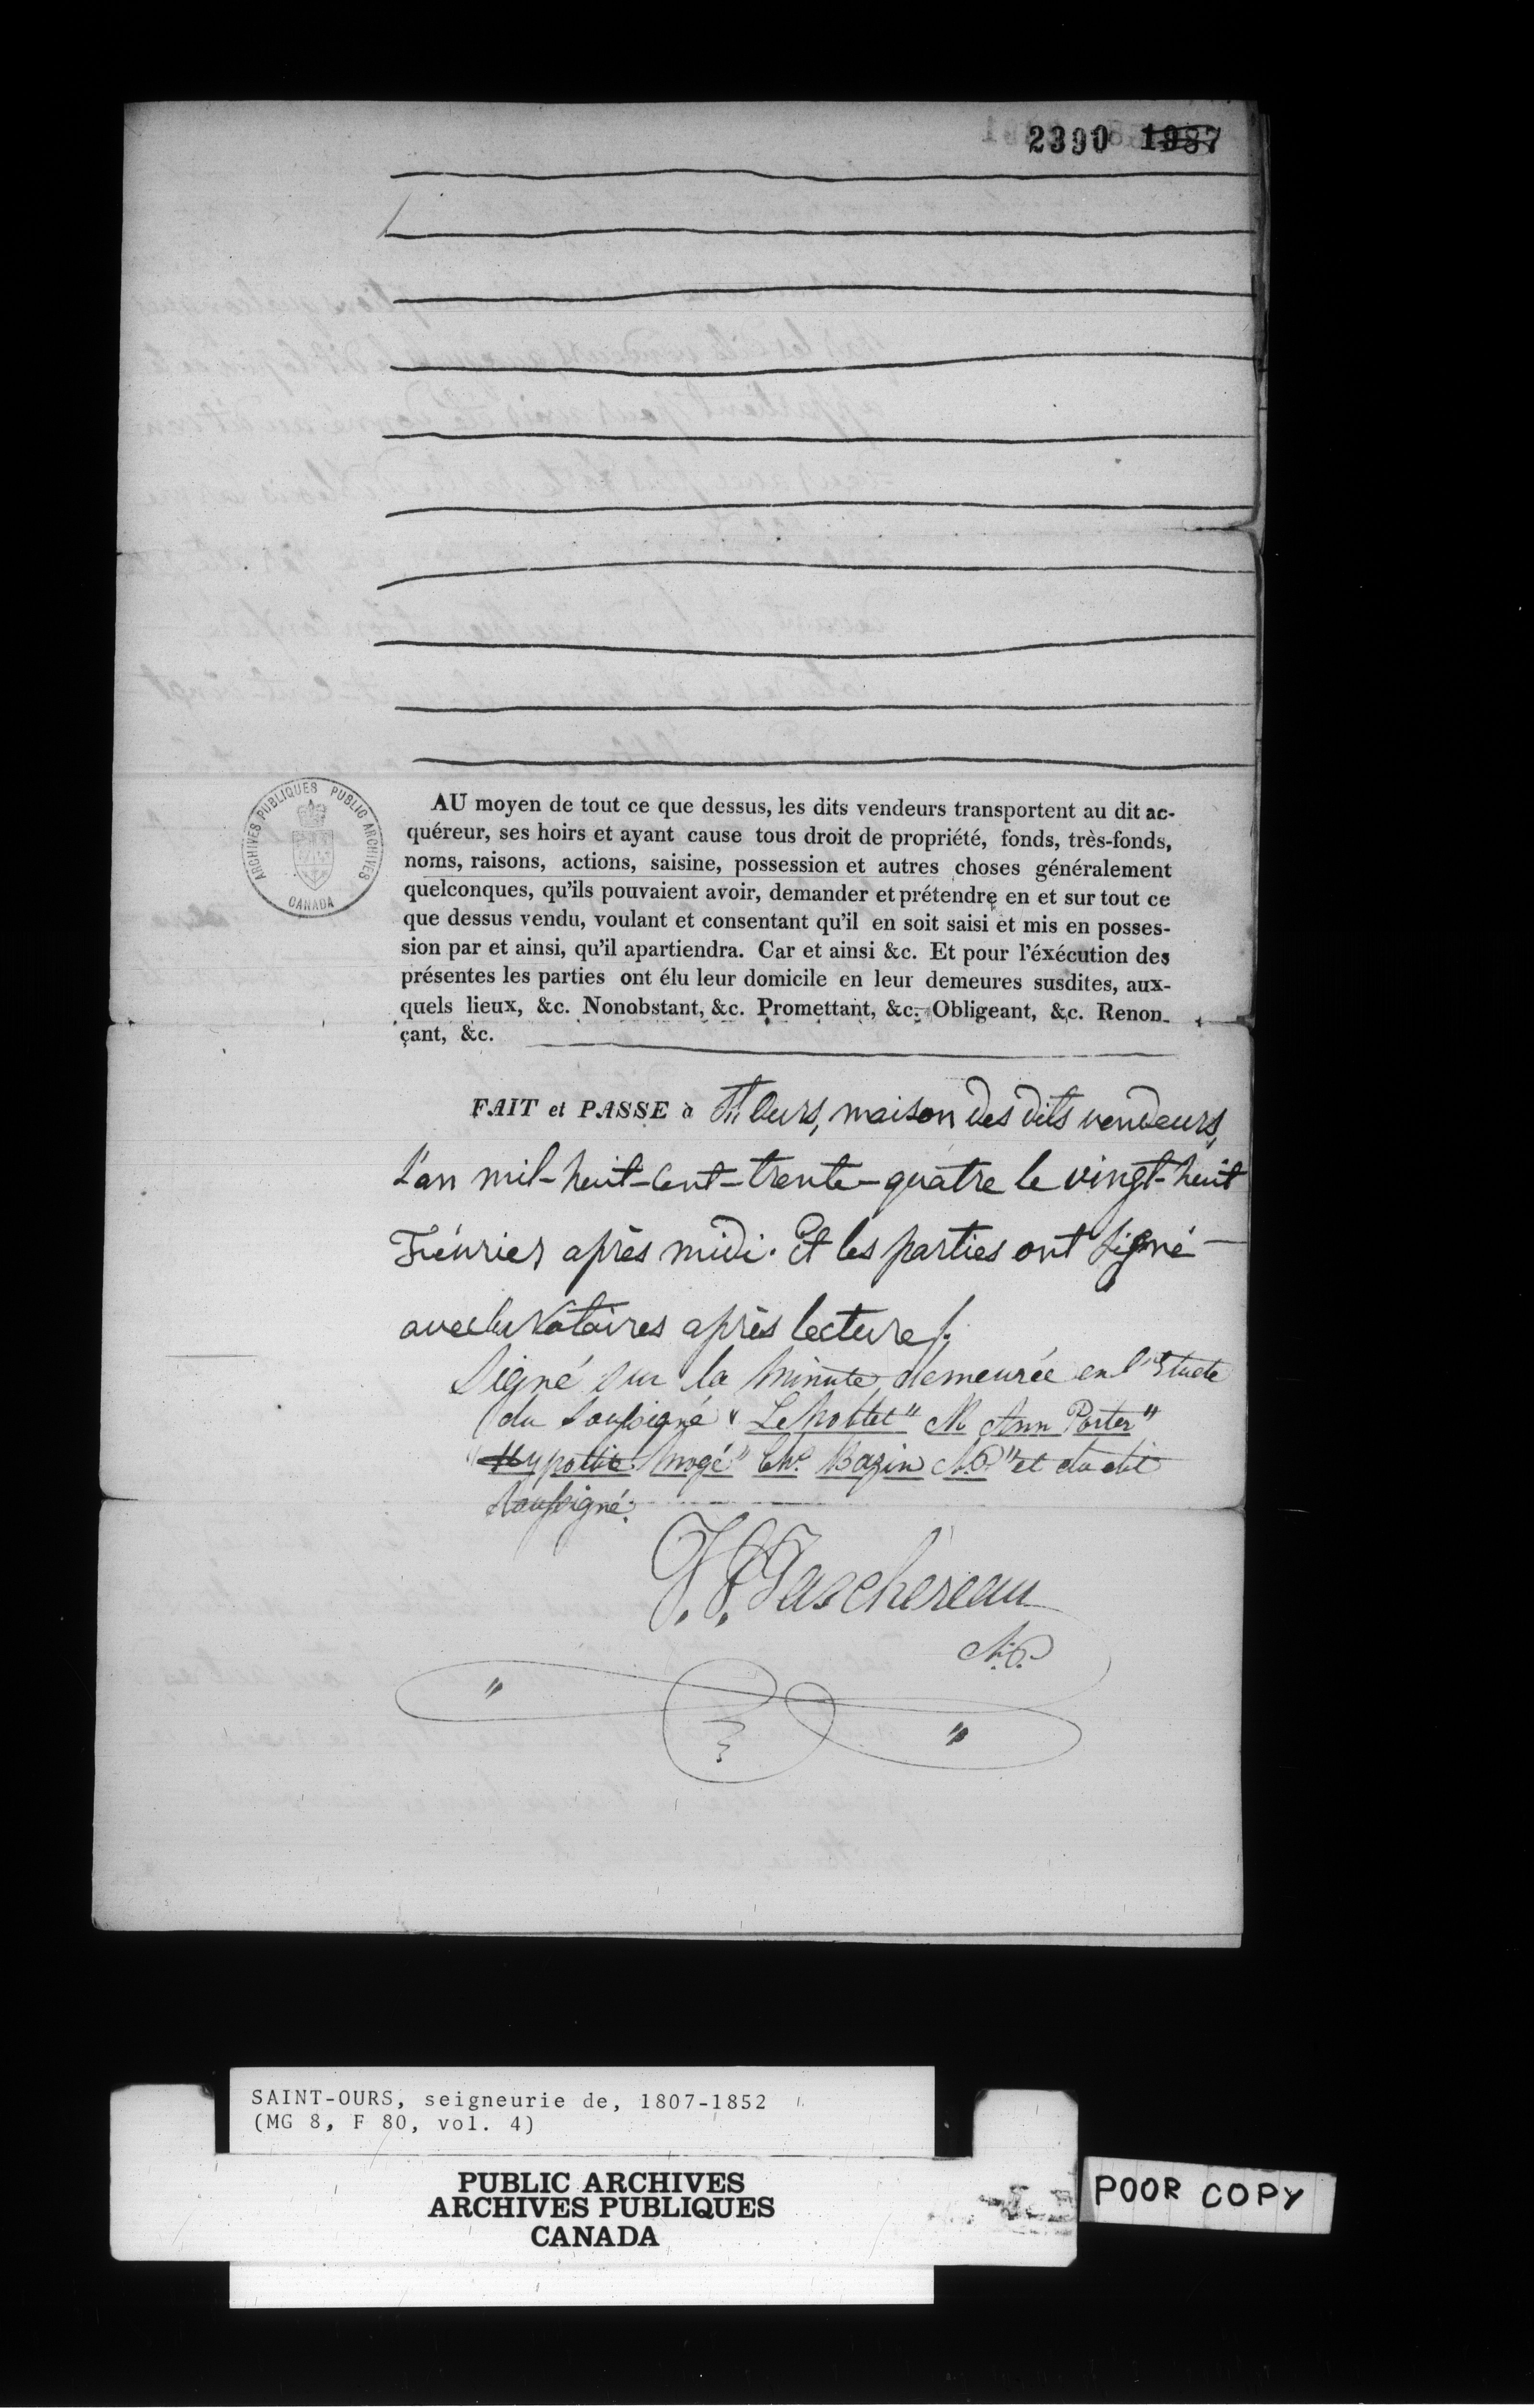 2390 1987
ARCHIVES PUBLIQUES PUBLIC ARCHIVES
CANADA
AU moyen de tout ce que dessus, les dits vendeurs transportent au dit ac-
quéreur, ses hoirs et ayant cause tous droit de propriété, fonds, très-fonds,
noms, raisons, actions, saisine, possession et autres choses généralement
quelconques, qu'ils pouvaient avoir, demander et prétendre en et sur tout ce
que dessus vendu, voulant et consentant qu'il en soit saisi et mis en posses-
sion par et ainsi, qu'il apartiendra. Car et ainsi &c. Et pour l'éxécution des
présentes les parties ont élu leur domicile en leur demeures susdites, aux-
quels lieux, &c. Nonobstant, &c. Promettant, &c. Obligeant, &c. Renon-
çant, &c.
FAIT et PASSE à St. Ours, maison des dits vendeurs,
L'an mil-huit-cent-trente-quatre le vingt-huit
Février après midi. Et les parties ont signé
avec les Notaires après lecture/.
Signé sur la minute demeurée en l'Etude
du soussigné M Ann Porter"
Mogé" Chs. Bazin N.P" et du dit
soussigné.
Taschereau
N.P.
SAINT-OURS, seigneurie de, 1807-1852
(MG 8, F 80, vol. 4)
PUBLIC ARCHIVES
ARCHIVES PUBLIQUES
CANADA
POOR COPY